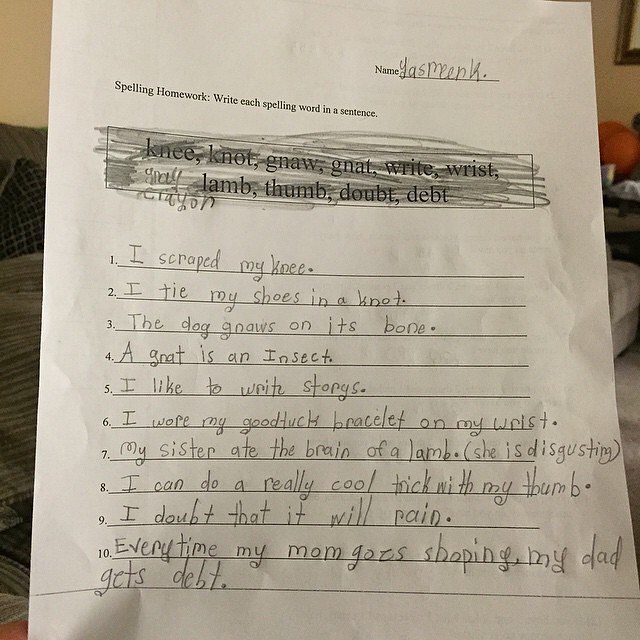 Name Yasmeen K.
Spelling Homework: Write each spelling word in a sentence.
knee, knot, gnaw, gnat, write, wrist,
gray lamb, thumb, doubt, debt
crayon
1. I scraped my knee.
2. I tie my shoes in a knot.
3. The dog gnaws on its bone.
4. A gnat is an Insect.
5. I like to write storys.
6. I wore my goodluck bracelet on my wrist.
7. My sister ate the brain of a lamb. (she is disgusting)
8. I can do a really cool trick with my thumb.
9. I doubt that it will rain.
10. Everytime my mom goes shoping, my dad
gets debt.